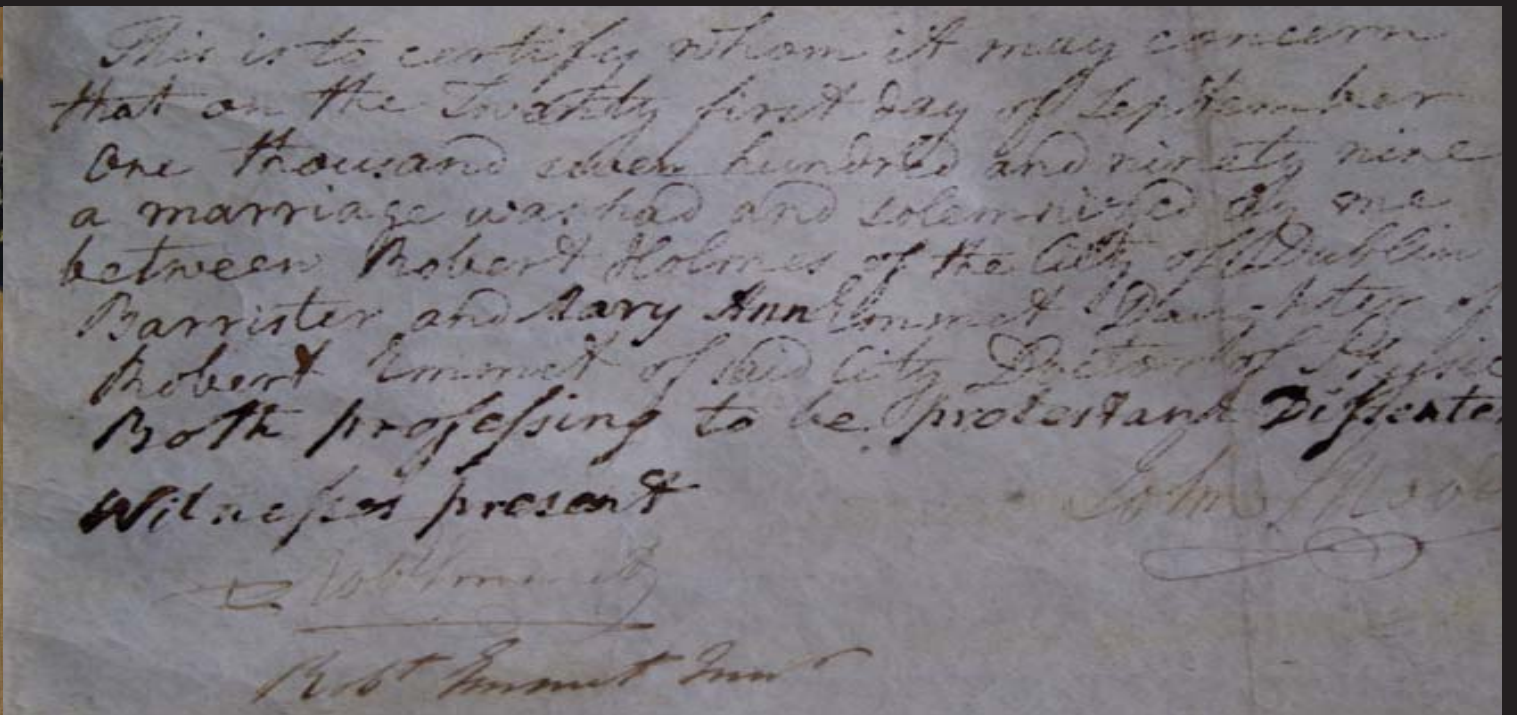 This is to certify whom it may concern
that on the Twenty first day of September
One thousand seven hundred and ninety nine
a marriage was had and solemnized by me
between Robert Holmes of the City of Dublin
Barrister and Mary Ann Emmet Daughter of
Robert Emmet of said City Doctor of Physic
Both professing to be protestant Dissente
Witnesses present
John
Robt Emmet
Robt Emmet Junr